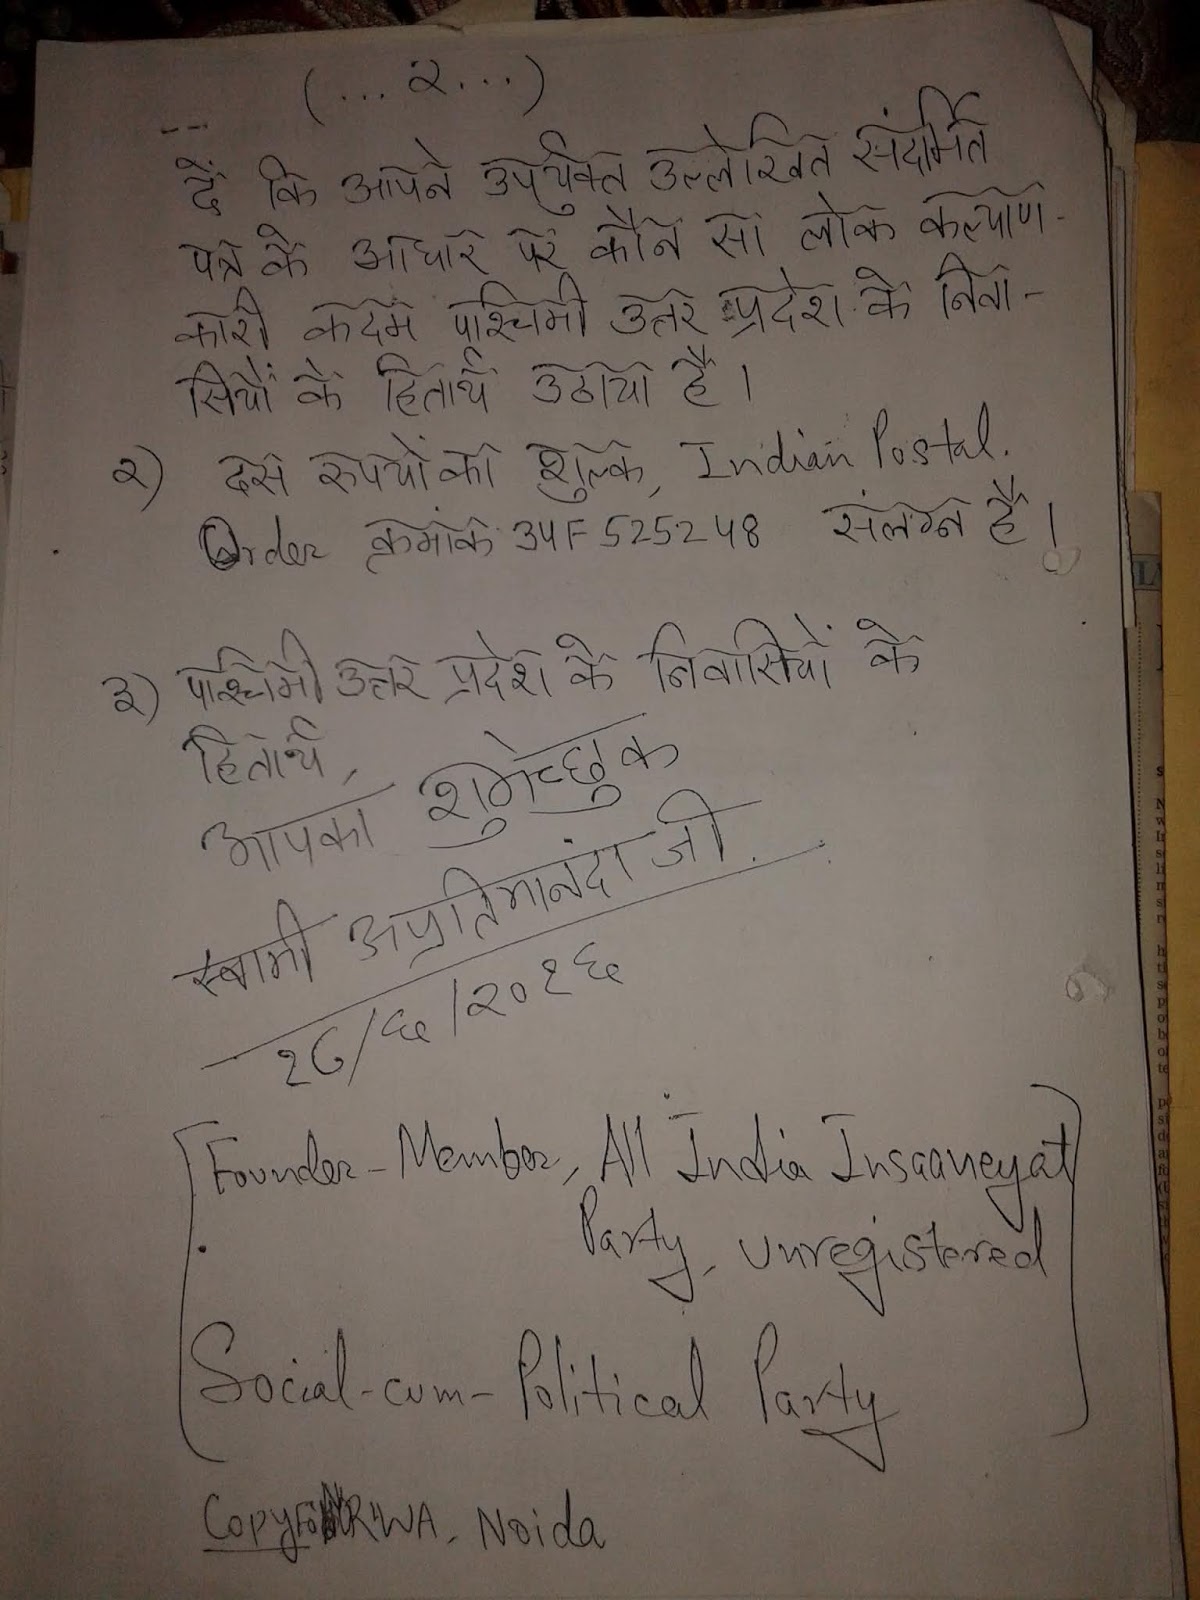 (... २ ...)
---
दें कि आपने उपर्युक्त उल्लेखित संदर्मित
पत्र के आधार पर कौन सा लोक कल्याण-
कारी कदम पश्चिमी उत्तर प्रदेश के निवा-
सियों के हितार्थ उठाया है।
२) दस रुपयों का शुल्क, Indian Postal.
Order क्रमांक 34F 525248 संलग्न है।
३) पश्चिमी उत्तर प्रदेश के निवासियों के
हितार्थ,
आपका शुभेच्छुक
स्वामी अप्रतिमानंदा जी.
१८/६/२०१६
[Founder-Member, All India Insaaneyat
Party, unregistered
Social-cum-Political Party]
Copy RWA, Noida